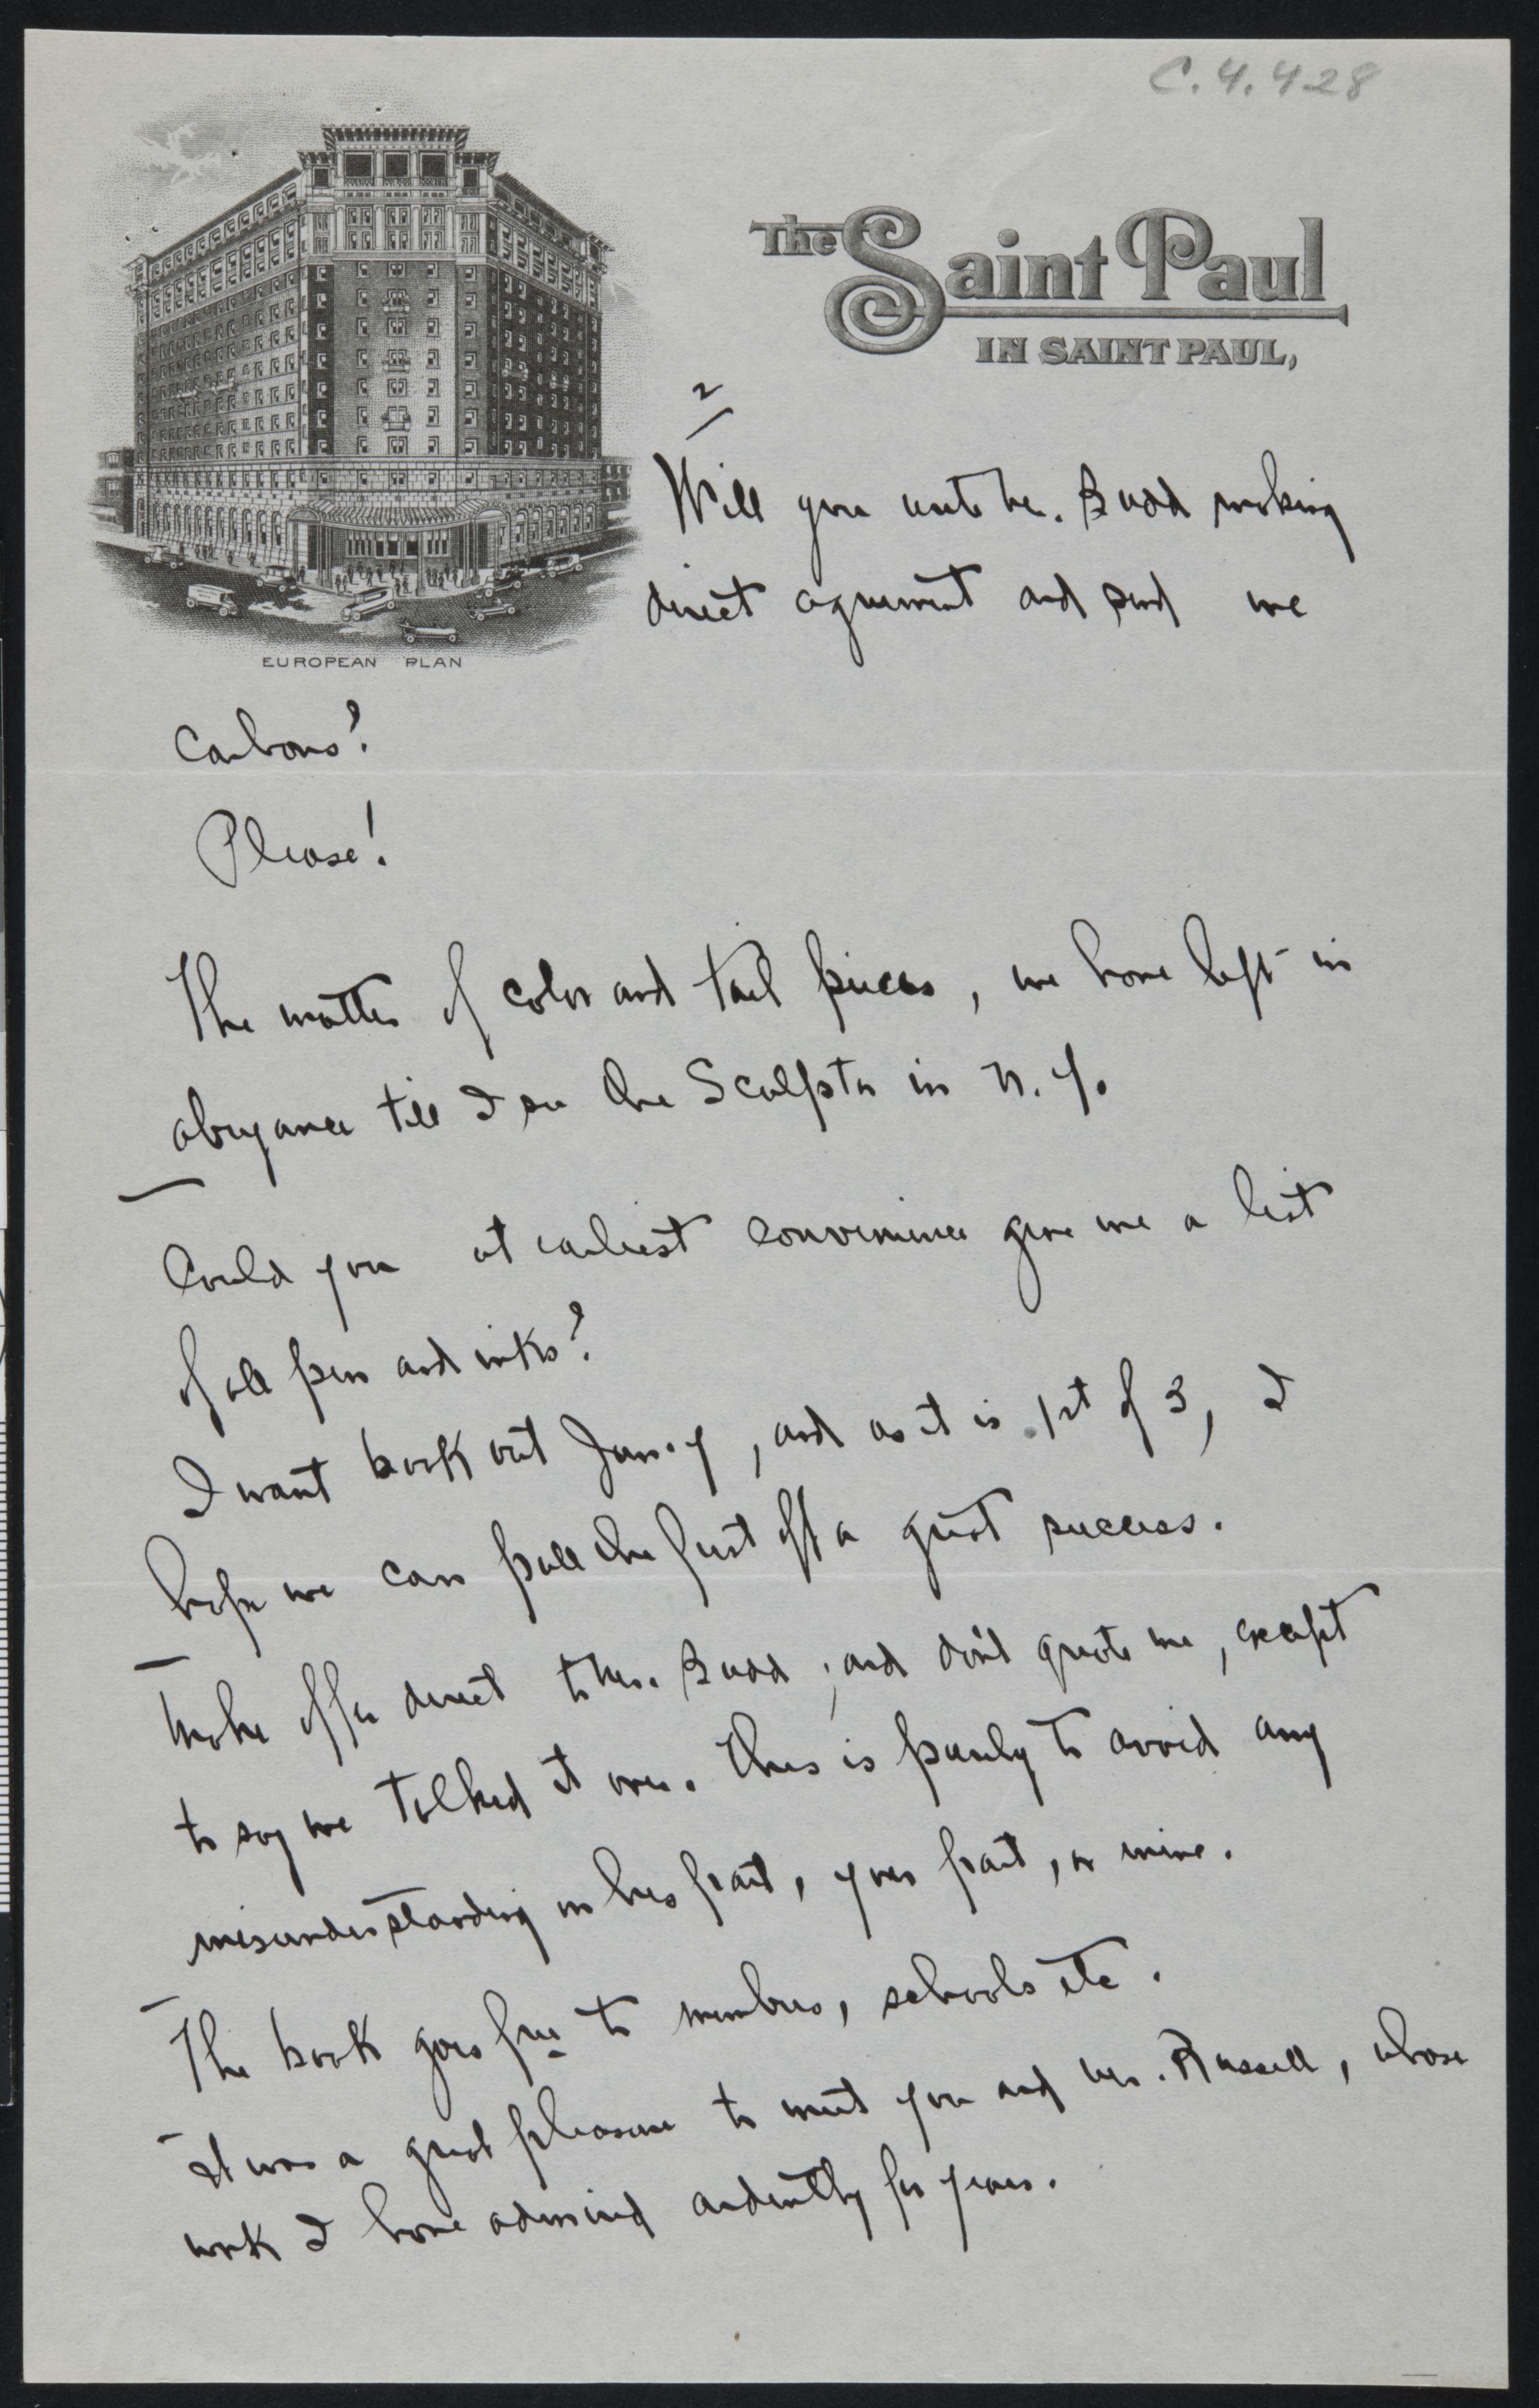 C.4.428
The Saint Paul
IN SAINT PAUL,
EUROPEAN PLAN
2
Will you write Mr. Budd making
direct agreement and send me
Carbons?
Please!
The matter of color and tail pieces, we have left in
abeyance till I see the Sculptor in N.Y.
Could you at earliest convenience give me a list
of all pen and inks?
I want book out Jan. 1, and as it is 1st of 3, I
hope we can pull the first off a great success.
Make offer direct to Mr. Budd, and don't quote me, except
to say we talked it over. This is purely to avoid any
misunderstanding on his part, your part, or mine.
The book goes free to members, schools etc.
It was a great pleasure to meet you and Mr. Russell, whose
work I have admired ardently for years.